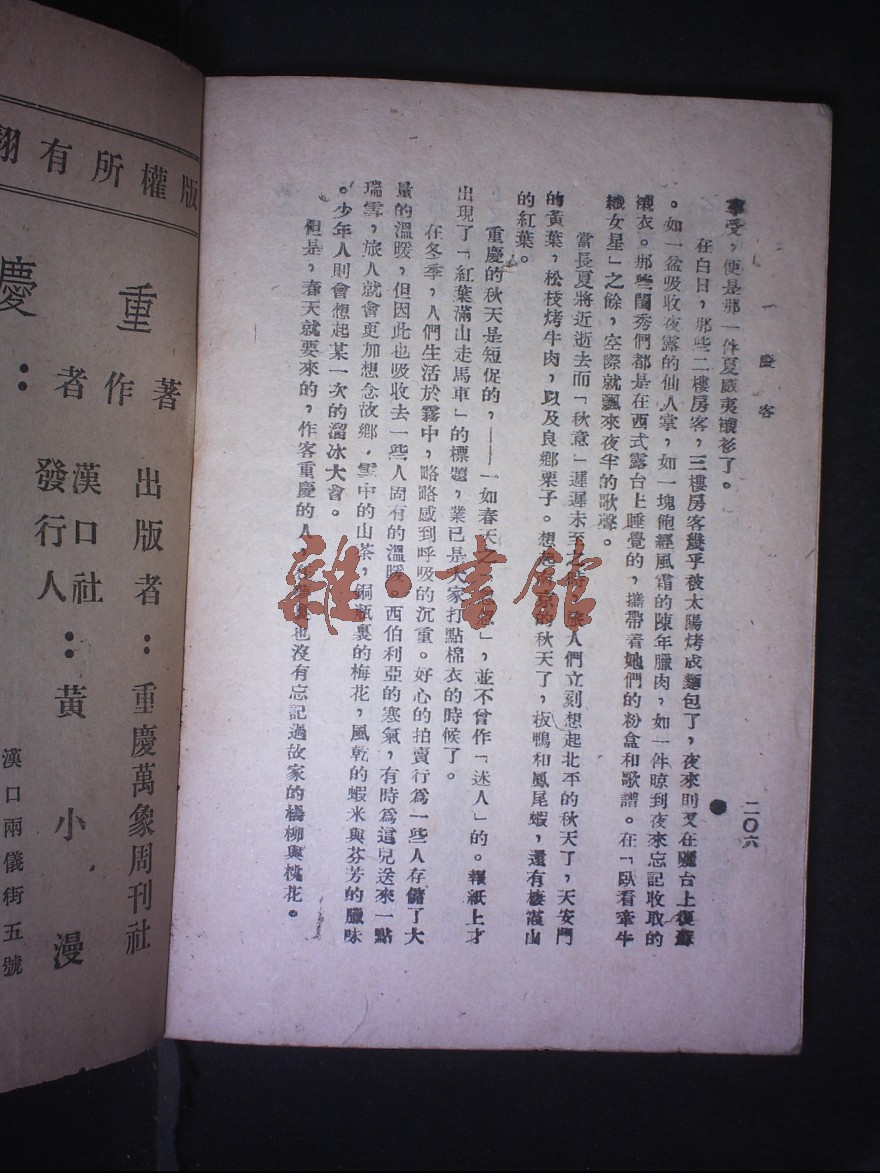 一慶客
二〇六
享受，便是那一件夏威夷襯衫了。
在白日，那些二樓房客，三樓房客幾乎被太陽烤成麵包了，夜來則又在曬台上復蘇
。如一盆吸收夜露的仙人掌，如一塊飽經風霜的陳年臘肉，如一件晾到夜來忘記收取的
襯衣。那些閨秀們都是在西式露台上睡覺的，攜帶着她們的粉盒和歌譜。在「臥看牽牛
織女星」之餘，空際就飄來夜半的歌聲。
當長夏將近逝去而「秋意」遲遲未至之
人們立刻想起北平的秋天了，天安門
的黃葉，松枝烤牛肉，以及良鄉栗子。想起
的秋天了，板鴨和鳳尾蝦，還有棲霞山
的紅葉。
重慶的秋天是短促的，——一如春天之
」，並不曾作「迷人」的。報紙上才
出現了「紅葉滿山走馬車」的標題，業已是大家打點棉衣的時候了。
在冬季，人們生活於霧中，略略感到呼吸的沉重。好心的拍賣行爲一些人存儲了大
量的溫暖，但因此也吸收去一些人固有的溫暖。西伯利亞的寒氣，有時爲這兒送來一點
瑞雪，旅人就會更加想念故鄉．雪中的山茶，銅瓶裏的梅花，風乾的蝦米與芬芳的臘味
。少年人則會想起某一次的溜冰大會。
但是，春天就要來的，作客重慶的人，
也沒有忘記過故家的楊柳與桃花。
版權所有翻
重慶
著作者：
出版者：重慶萬象周刊社
漢口社
發行人：黃小漫
漢口兩儀街五號
雜·書館